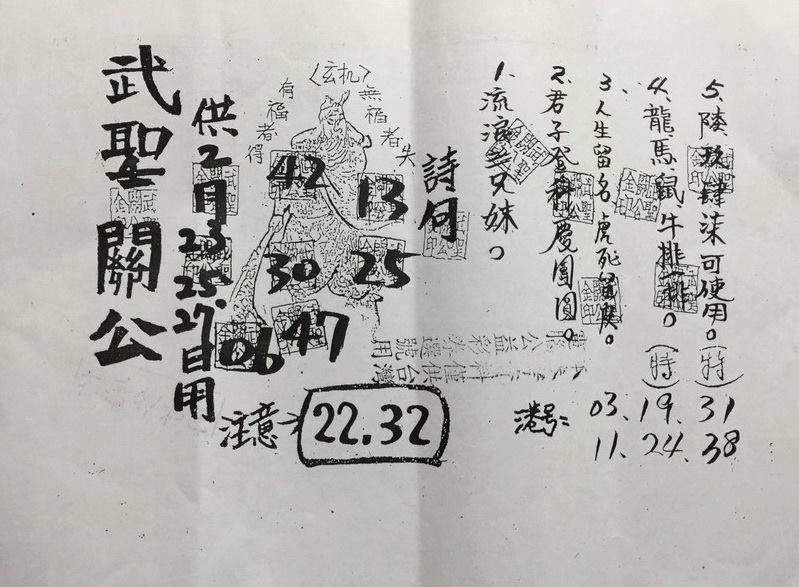 武聖關公
供2月23.25.27.日用
〈玄机〉
有福者得
無福者失
42
13
30
25
06
47
詩句
注意→
22.32
1、流浪三兄妹。
2、君子登科慶團圓。
3、人生留名虎死留皮。
4、龍馬鼠牛排一排。(特)
5、陸玖肆柒可使用。(特)
港号:
03、19、31
11、24、38